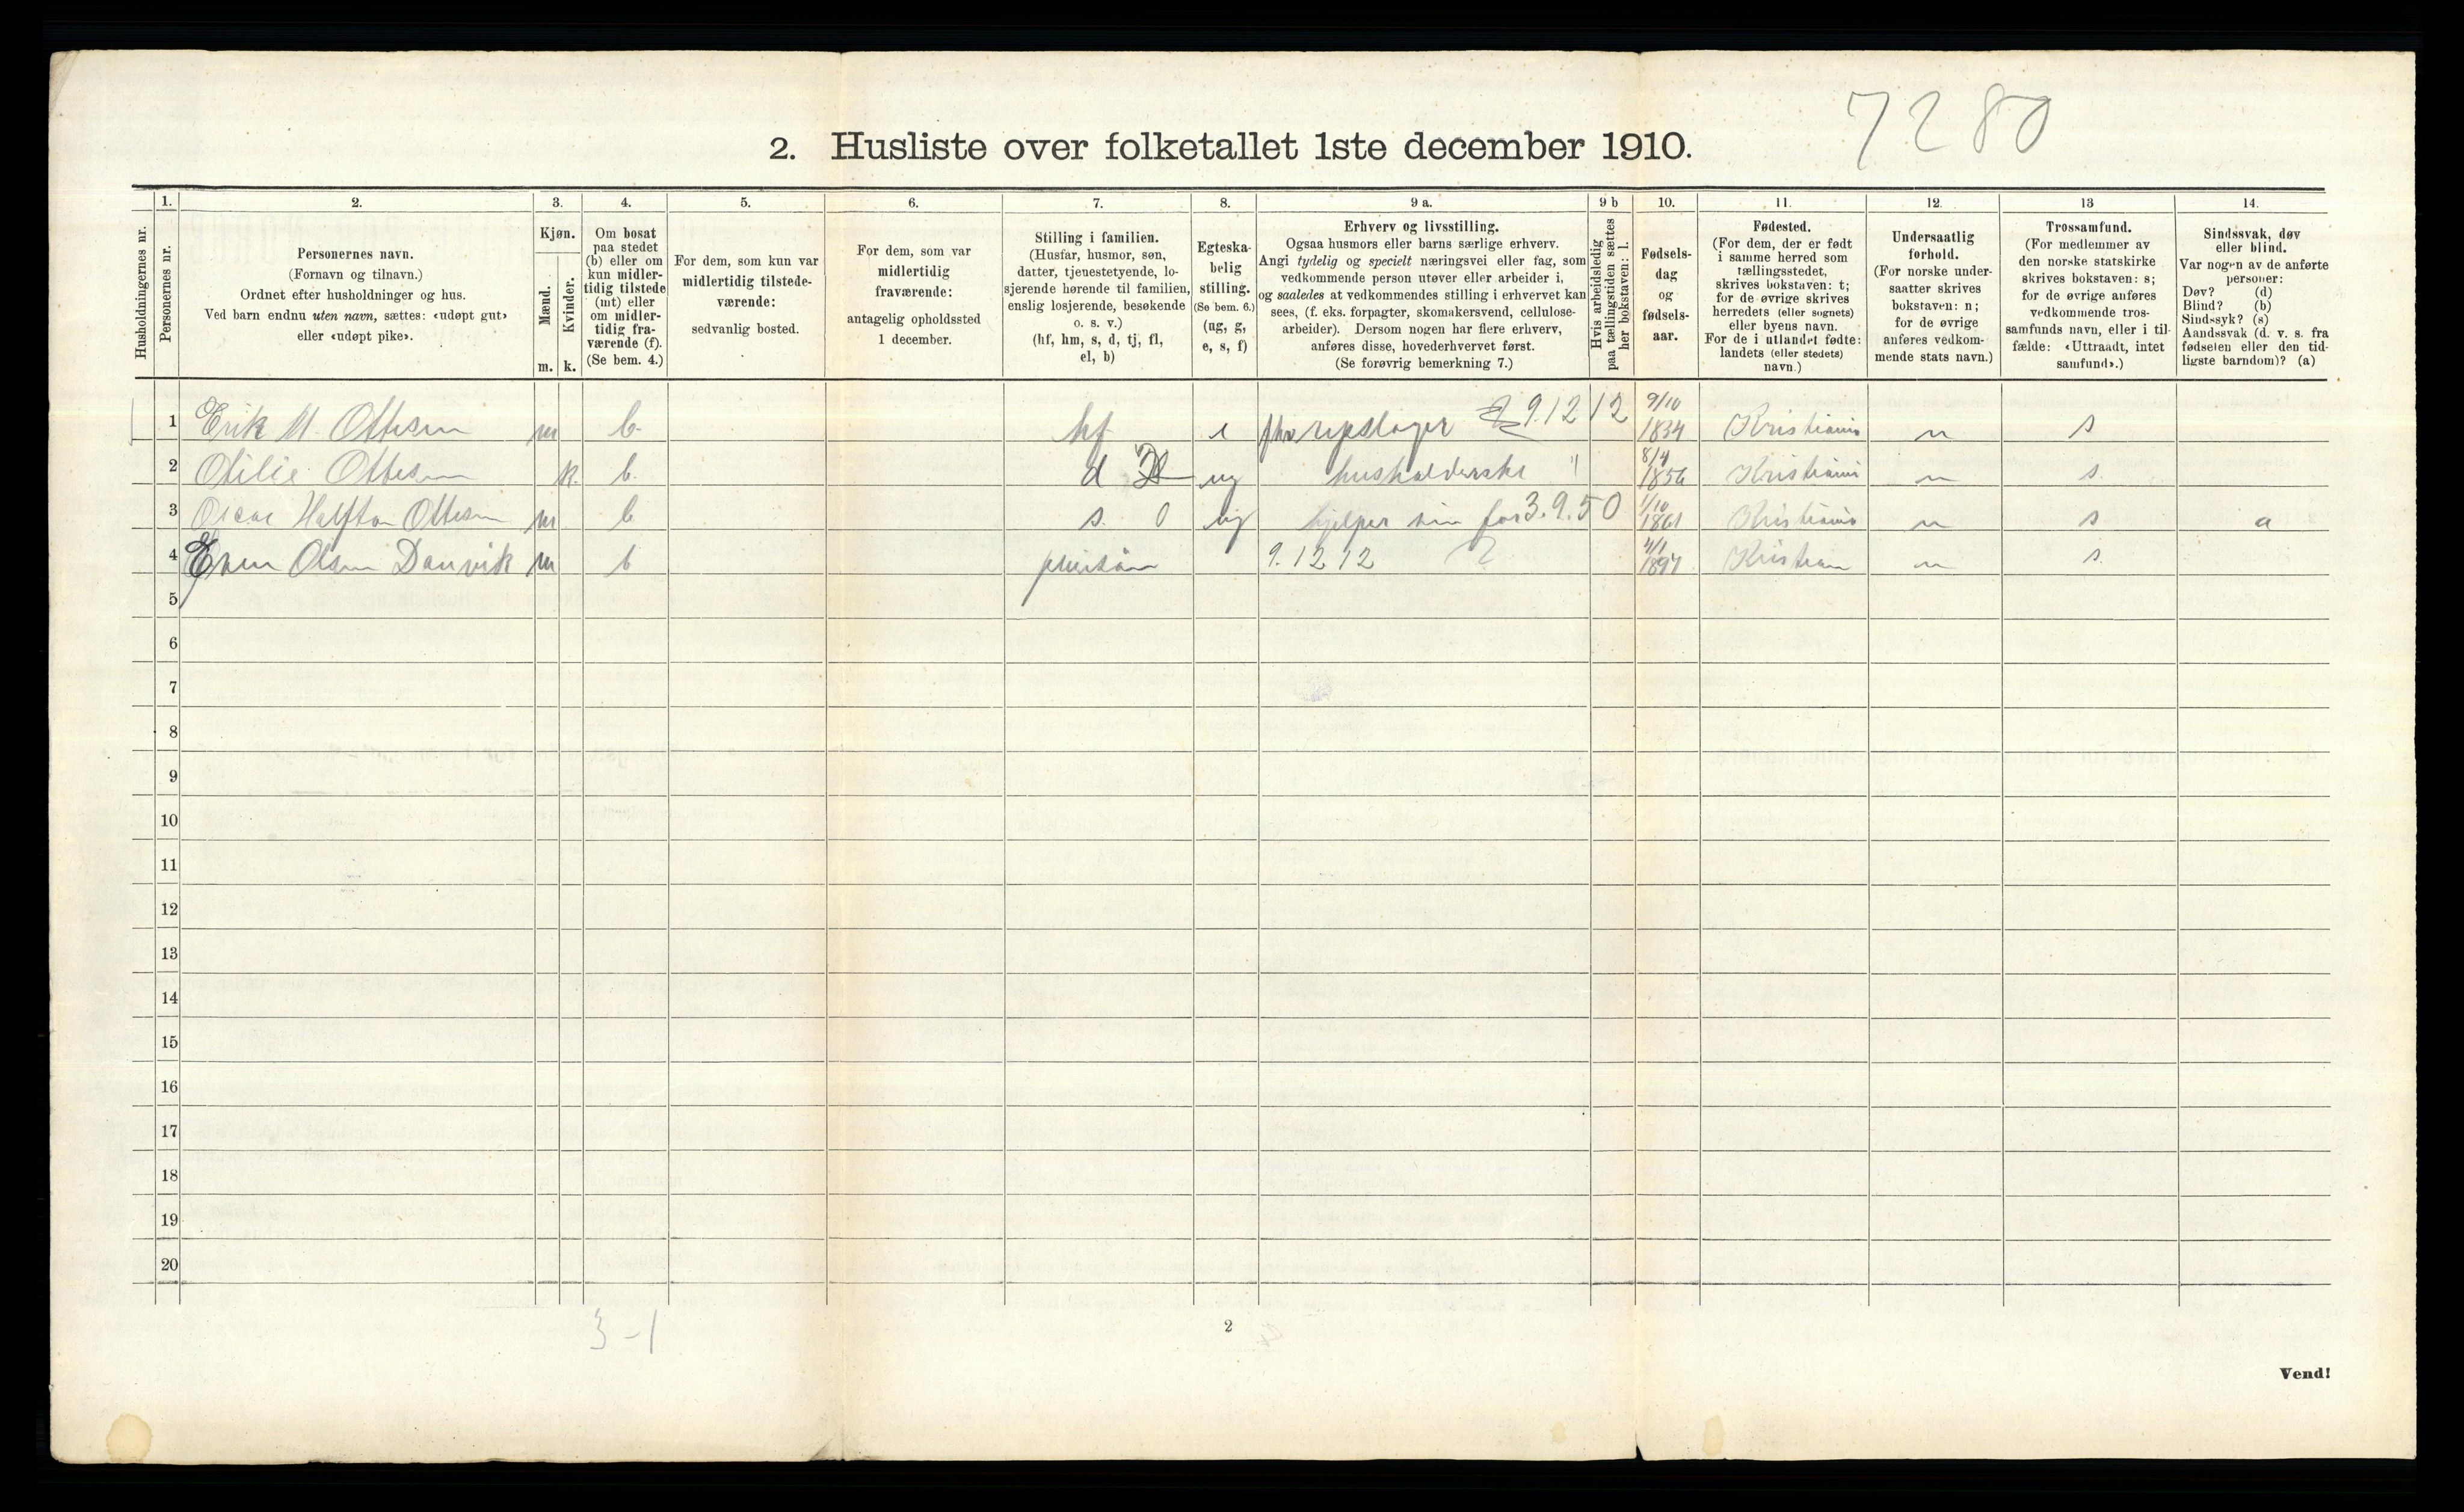 7280
2. Husliste over folketallet 1ste december 1910.
Husholdningernes nr.
1.
Personernes nr.
2.
Personernes navn.
(Fornavn og tilnavn.)
Ordnet efter husholdninger og hus.
Ved barn endnu uten navn, sættes: «udøpt gut»
eller «udøpt pike».
3.
Kjøn.
Mænd.
Kvinder.
m. k.
4.
Om bosat
paa stedet
(b) eller om
kun midler-
tidig tilstede
(mt) eller
om midler-
tidig fra-
værende (f).
(Se bem. 4.)
5.
For dem, som kun var
midlertidig tilstede-
værende:
sedvanlig bosted.
6.
For dem, som var
midlertidig
fraværende:
antagelig opholdssted
1 december.
7.
Stilling i familien.
(Husfar, husmor, søn,
datter, tjenestetyende, lo-
sjerende hørende til familien,
enslig losjerende, besøkende
o. s. v.)
(hf, hm, s, d, tj, fl,
el, b)
8.
Egteska-
belig
stilling.
(Se bem. 6.)
(ug, g,
e, s, f)
9 a.
Erhverv og livsstilling.
Ogsaa husmors eller barns særlige erhverv.
Angi tydelig og specielt næringsvei eller fag, som
vedkommende person utøver eller arbeider i,
og saaledes at vedkommendes stilling i erhvervet kan
sees, (f. eks. forpagter, skomakersvend, cellulose-
arbeider). Dersom nogen har flere erhverv,
anføres disse, hovederhvervet først.
(Se forøvrig bemerkning 7.)
9 b
Hvis arbeidsledig
paa tællingstiden sættes
her bokstaven: l.
10.
Fødsels-
dag
og
fødsels-
aar.
11.
Fødested.
(For dem, der er født
i samme herred som
tællingsstedet,
skrives bokstaven: t;
for de øvrige skrives
herredets (eller sognets)
eller byens navn.
For de i utlandet fødte:
landets (eller stedets)
navn.)
12.
Undersaatlig
forhold.
(For norske under-
saatter skrives
bokstaven: n;
for de øvrige
anføres vedkom-
mende stats navn.)
13
Trossamfund.
(For medlemmer av
den norske statskirke
skrives bokstaven: s;
for de øvrige anføres
vedkommende tros-
samfunds navn, eller i til-
fælde: «Uttraadt, intet
samfund».)
14.
Sindssvak, døv
eller blind.
Var nogen av de anførte
personer:
Døv? (d)
Blind? (b)
Sindssyk? (s)
Aandssvak (d. v. s. fra
fødselen eller den tid-
ligste barndom)? (a)
1 Erik M. Ottesen m b. hf e fhv repslager 9.12 12 9/10 1834 Kristiania n s
2 Otilie Ottesen k. b. d ug husholderske " 8/4 1856 Kristiania n s.
3 Oscar Halfdan Ottesen m b s. 0 ug hjelper sin far 3.9.50 1/10 1861 Kristiania n s a
4 Even Olsen Danvik m b pleiesøn 9.12 12 4/1 1897 Kristiania n s.
5
6
7
8
9
10
11
12
13
14
15
16
17
18
19
20
3-1
2
Vend!